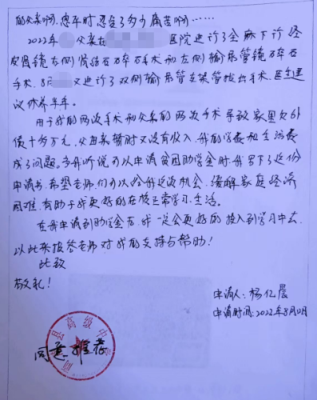 2022年 父亲在 医院进行了全麻下行经
皮肾镜左侧肾结石手术和左侧输尿管镜碎石
手术，又进行了双侧输尿管支架管拔出手术，医生建
议休养半年。
由于我的两次手术和父亲的两次手术导致家里欠外
债十多万元，父母亲暂时又没有收入，我的学费和生活费
成了问题。当我听说可以申请贫困助学金时我写下了这份
申请书，希望老师们可以给我这次机会，缓解家庭经济
困难，有助于我更好的在校正常学习、生活。
在我申请到助学金后，我一定会更好的投入到学习中去，
以此来报答老师对我的支持与帮助！
此致
敬礼！
申请人：杨亿晨
申请时间：2022年8月10日
县高级中
同意推荐